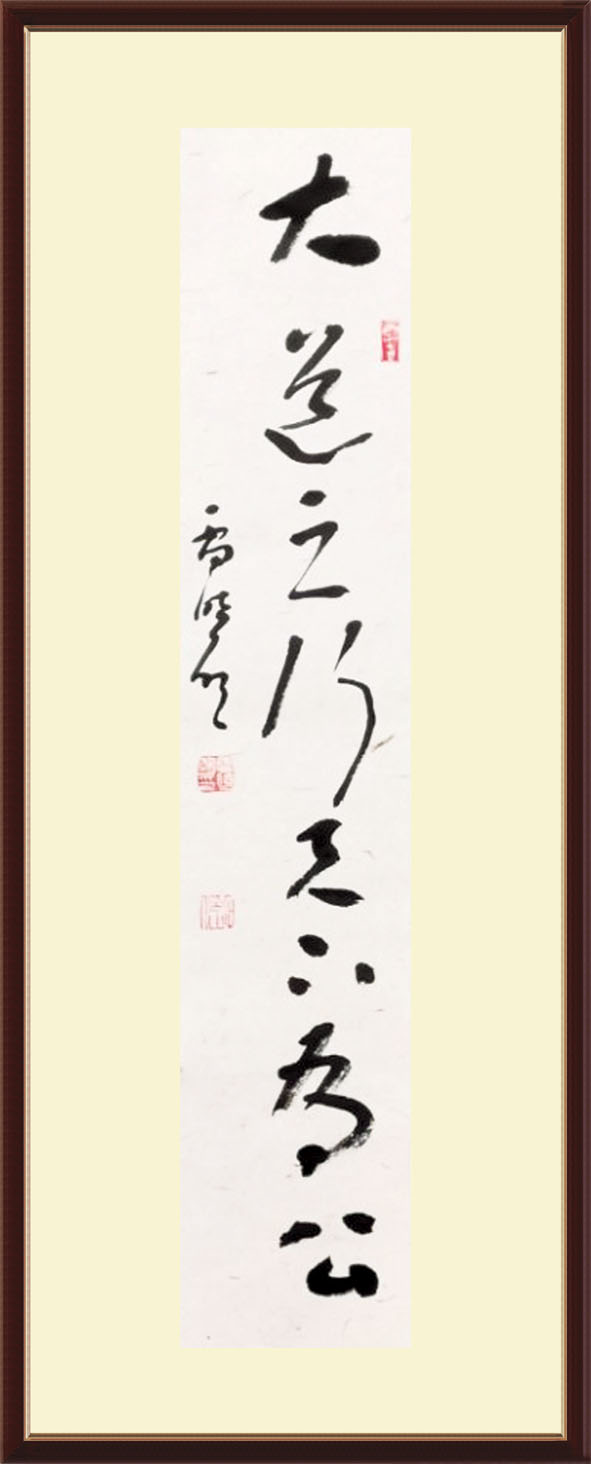 大道之行天下為公